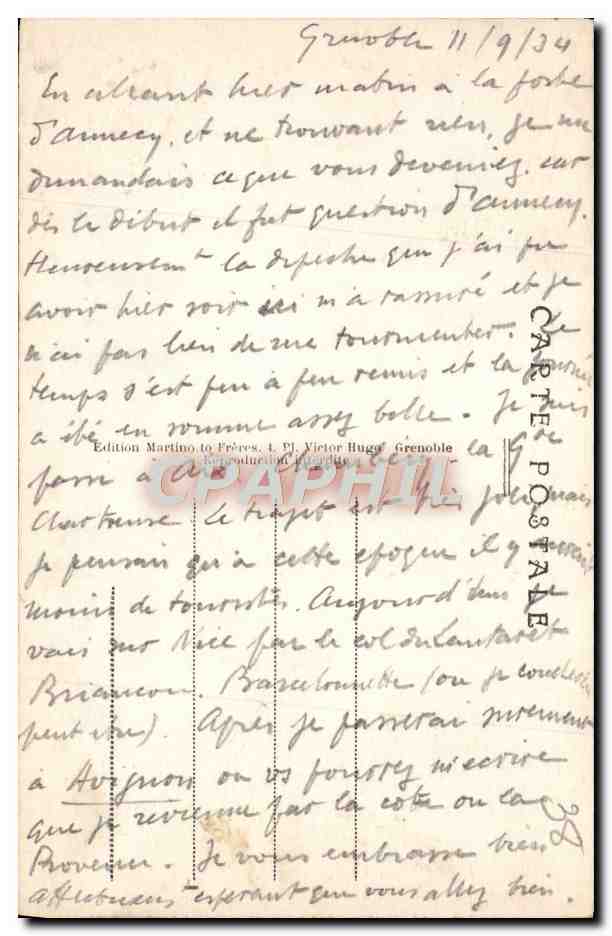 Grenoble 11/9/34
En allant hier matin à la poste
d'annecy, et ne trouvant rien, je me
demandais ce que vous deveniez. car
dès le début il fut question d'annecy.
Heureusemt la depeche que j'ai pu
avoir hier soir ici m'a rassuré et je
n'ai pas lieu de me tourmenter. Le
temps s'est peu à peu remis et la journée
a été en somme assez belle. Je suis
Edition Martinotto Frères, 4, Pl. Victor Hugo Grenoble
Reproduction interdite
passé à Aix Chambéry la Gde
Chartreuse. Le trajet est très joli mais
je pensais qu'à cette epoque il y aurait
moins de touristes. Aujourd'hui je
vais sur Nice par le col du Lautaret
Briancon. Barcelonnette (ou je coucherai
peut etre). Après je passerai surement
à Avignon ou vs pourrez m'ecrire
que je revienne par la cote ou la
Provence. Je vous embrasse bien
affectueust esperant que vous allez bien.
CARTE POSTALE
CPAPHIL
38